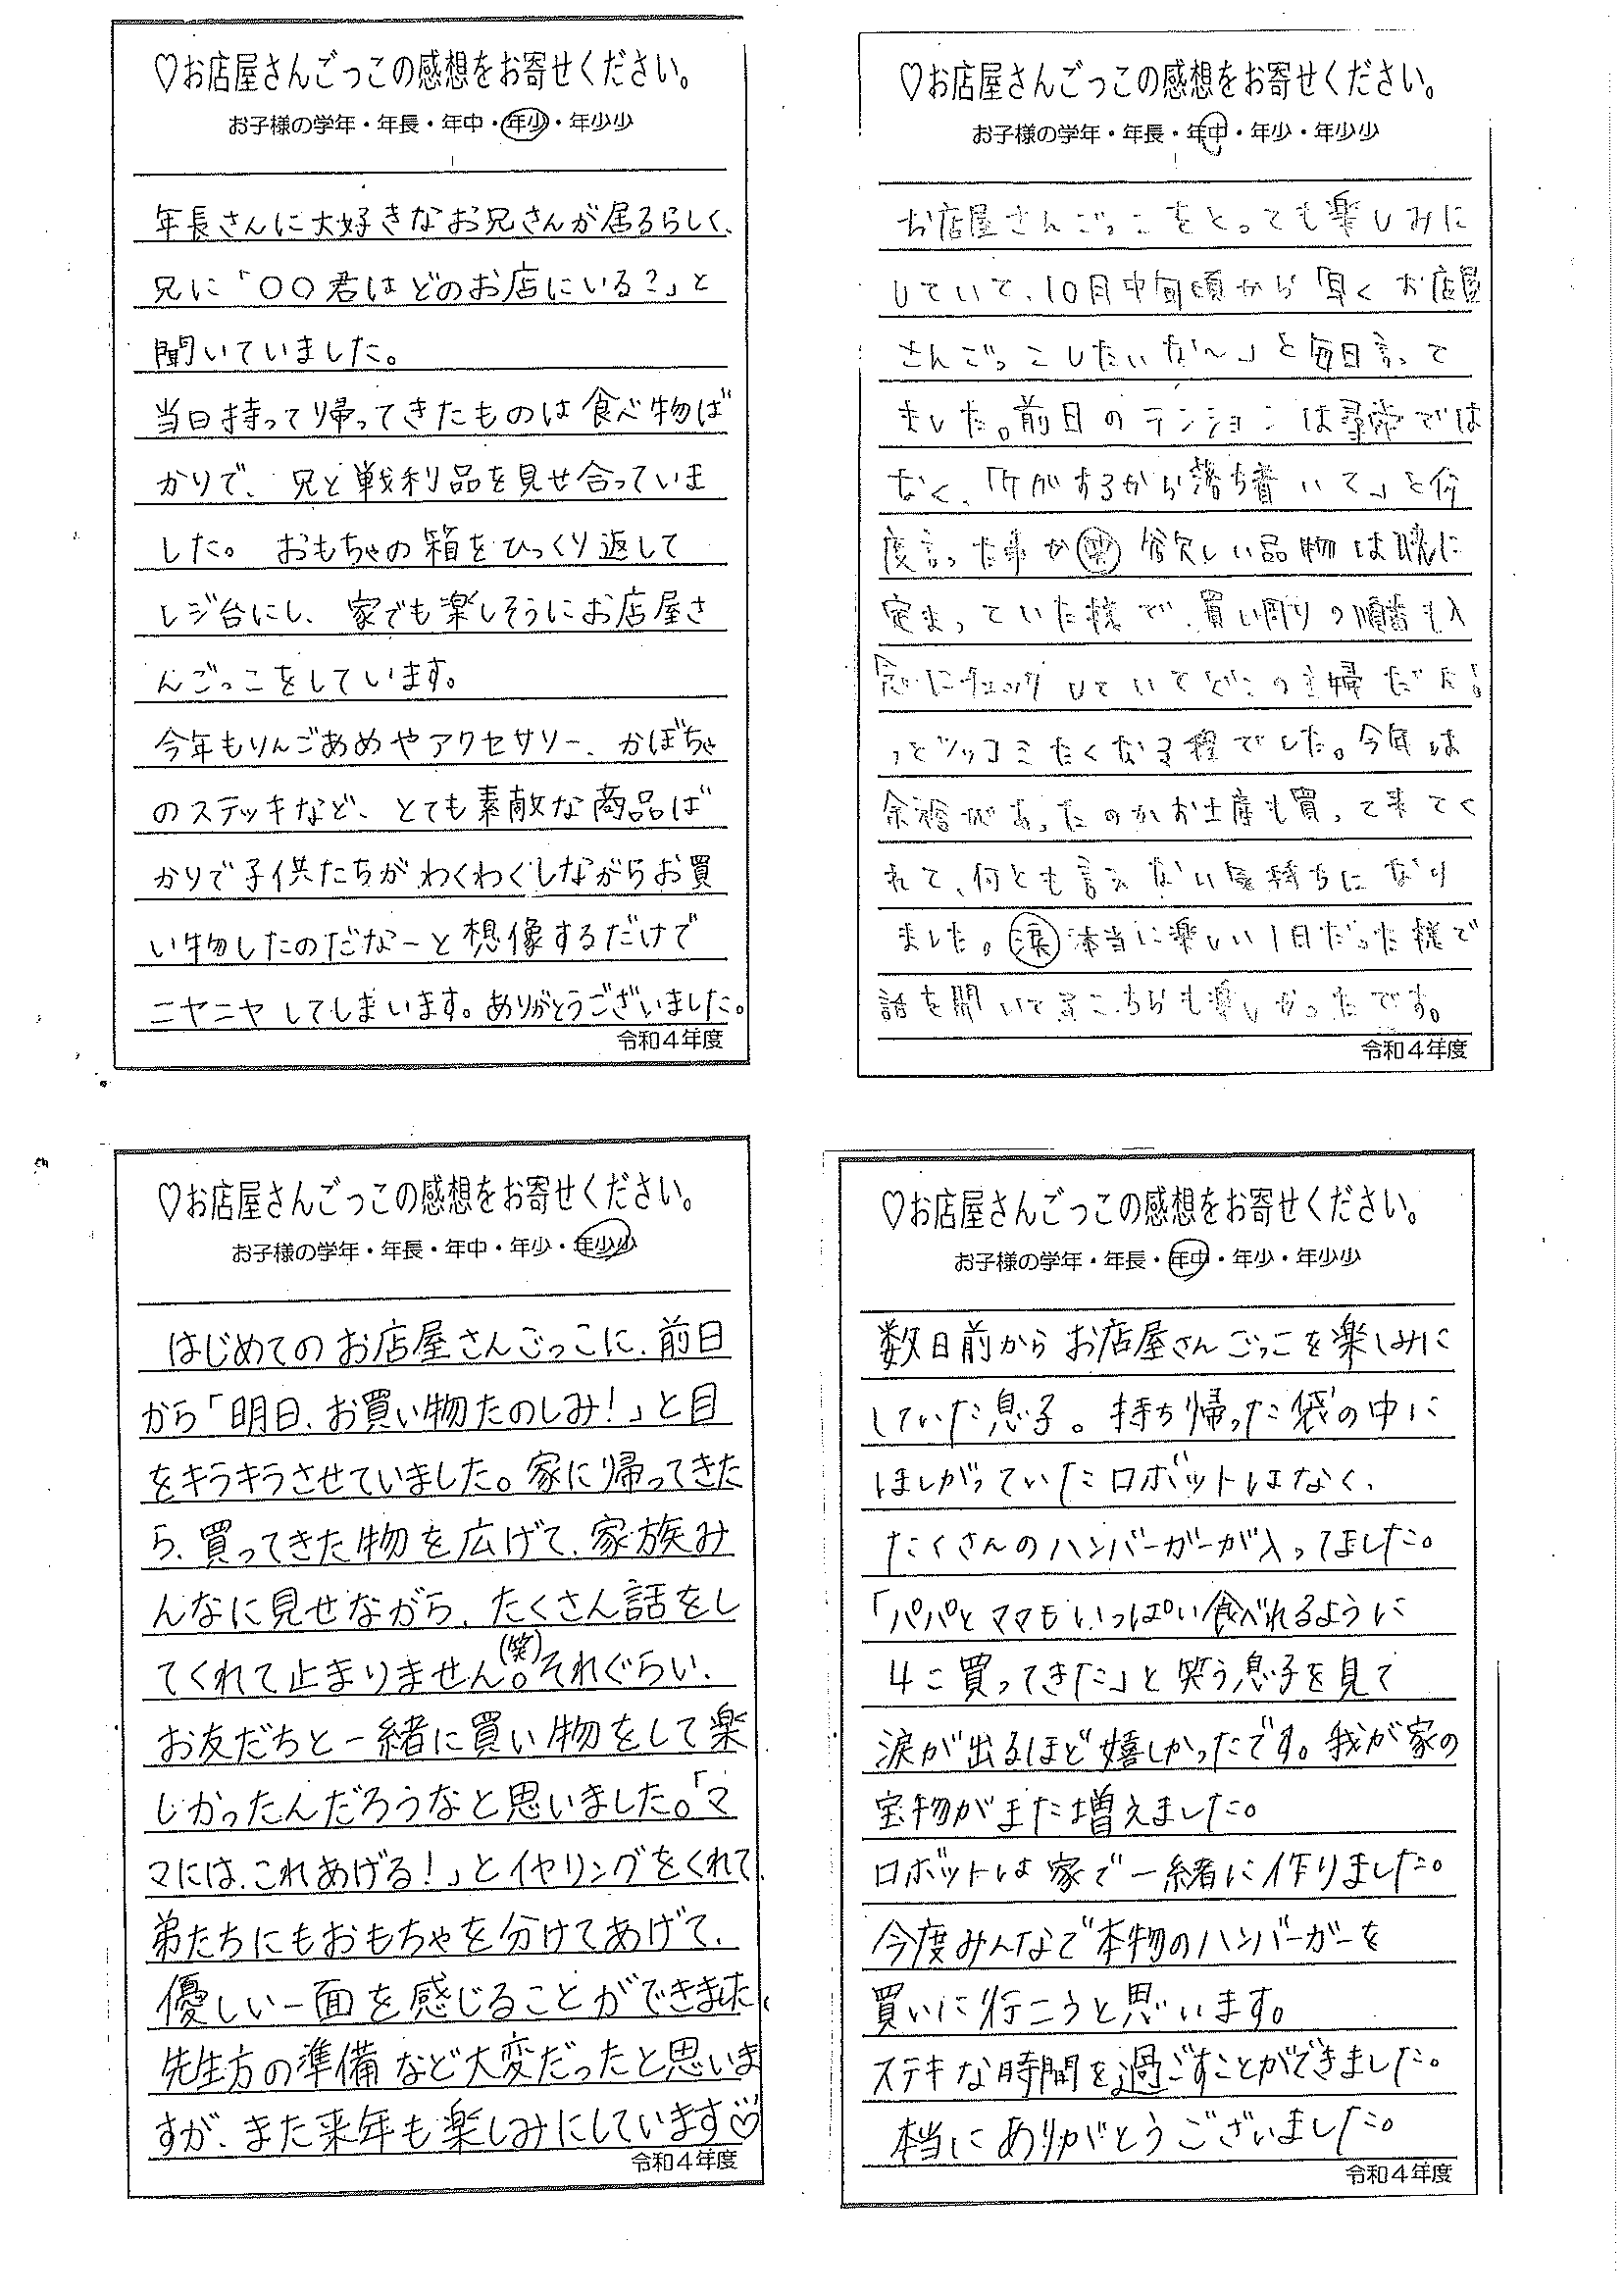 ♡お店屋さんごっこの感想をお寄せください。
お子様の学年・年長・年中・年少・年少少
年長さんに大好きなお兄さんが居るらしく、
兄に「〇〇君はどのお店にいる?」と
聞いていました。
当日持って帰ってきたものは食べ物ば
かりで、兄と戦利品を見せ合っていま
した。おもちゃの箱をひっくり返して
レジ台にし、家でも楽しそうにお店屋さ
んごっこをしています。
今年もりんごあめやアクセサリー、かぼちゃ
のステッキなど、とても素敵な商品ば
かりで子供たちがわくわくしながらお買
い物したのだなーと想像するだけで
ニヤニヤしてしまいます。ありがとうございました。
令和4年度
♡お店屋さんごっこの感想をお寄せください。
お子様の学年・年長・年中・年少・年少少
お店屋さんごっこをとっても楽しみに
していて、10月中旬頃から「早くお店屋
さんごっこしたいな〜」と毎日言って
ました。前日のテンションは尋常では
なく、「ケガするから落ち着いて」と何
度言った事か㊗笑 欲しい品物は既に
定まっていた様で、買い周りの順番も入
念にチェックしていてどこの主婦だた!
っとツッコミたくなる程でした。今年は
余裕があったのかお土産も買って来てく
れて、何とも言えない気持ちになり
ました。涙 本当に楽しい1日だった様で
話を聞いてるこちらも楽しかったです。
令和4年度
♡お店屋さんごっこの感想をお寄せください。
お子様の学年・年長・年中・年少・年少少
はじめてのお店屋さんごっこに、前日
から「明日、お買い物たのしみ!」と目
をキラキラさせていました。家に帰ってきた
ら、買ってきた物を広げて、家族み
んなに見せながら、たくさん話をし
てくれて止まりません(笑)。それぐらい、
お友だちと一緒に買い物をして楽
しかったんだろうなと思いました。「マ
マには、これあげる!」とイヤリングをくれて、
弟たちにもおもちゃを分けてあげて、
優しい一面を感じることができました。
先生方の準備など大変だったと思いま
すが、また来年も楽しみにしています♡
令和4年度
♡お店屋さんごっこの感想をお寄せください。
お子様の学年・年長・年中・年少・年少少
数日前からお店屋さんごっこを楽しみに
していた息子。持ち帰った袋の中に
ほしがっていたロボットはなく、
たくさんのハンバーガーが入ってました。
「パパとママもいっぱい食べれるように
4こ買ってきた」と笑う息子を見て
涙が出るほど嬉しかったです。我が家の
宝物がまた増えました。
ロボットは家で一緒に作りました。
今度みんなで本物のハンバーガーを
買いに行こうと思います。
ステキな時間を過ごすことができました。
本当にありがとうございました。
令和4年度